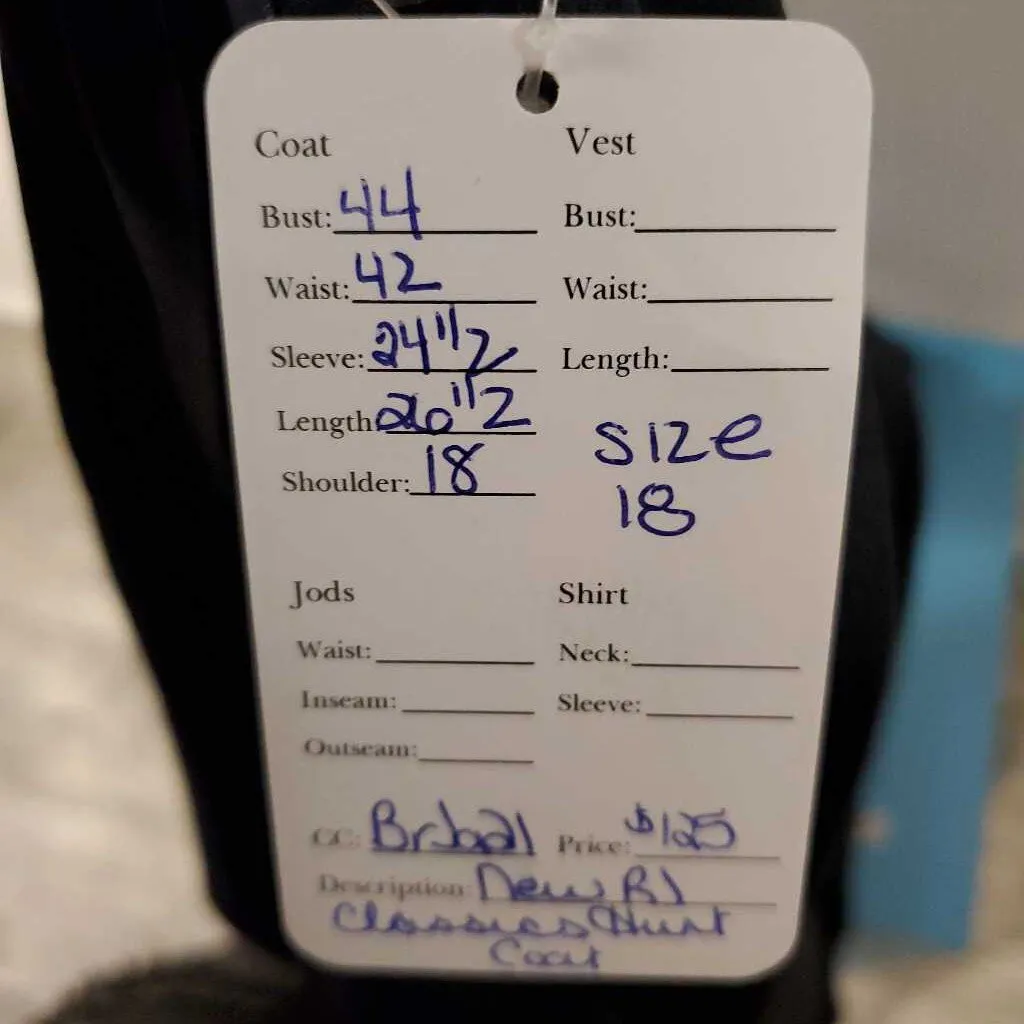 Coat
Bust: 44
Waist: 42
Sleeve: 24 1/2
Length 26 1/2
Shoulder: 18
Vest
Bust:
Waist:
Length:
SIZe
18
Jods
Waist:
Inseam:
Outseam:
Shirt
Neck:
Sleeve:
CC:
Price: $125
Description: New RJ
Classics Hunt
Coat